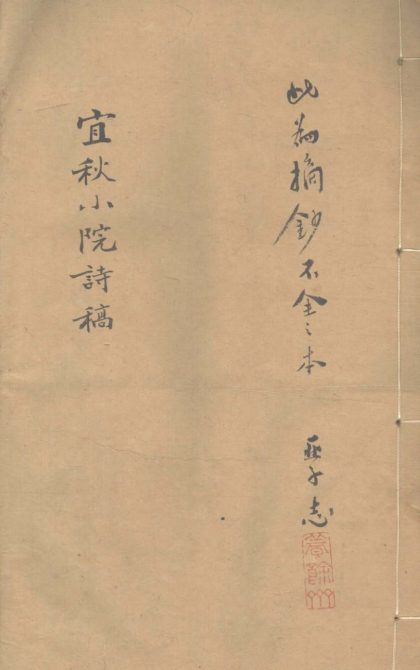 此為摘鈔不全之本 亞子志
宜秋小院詩稿